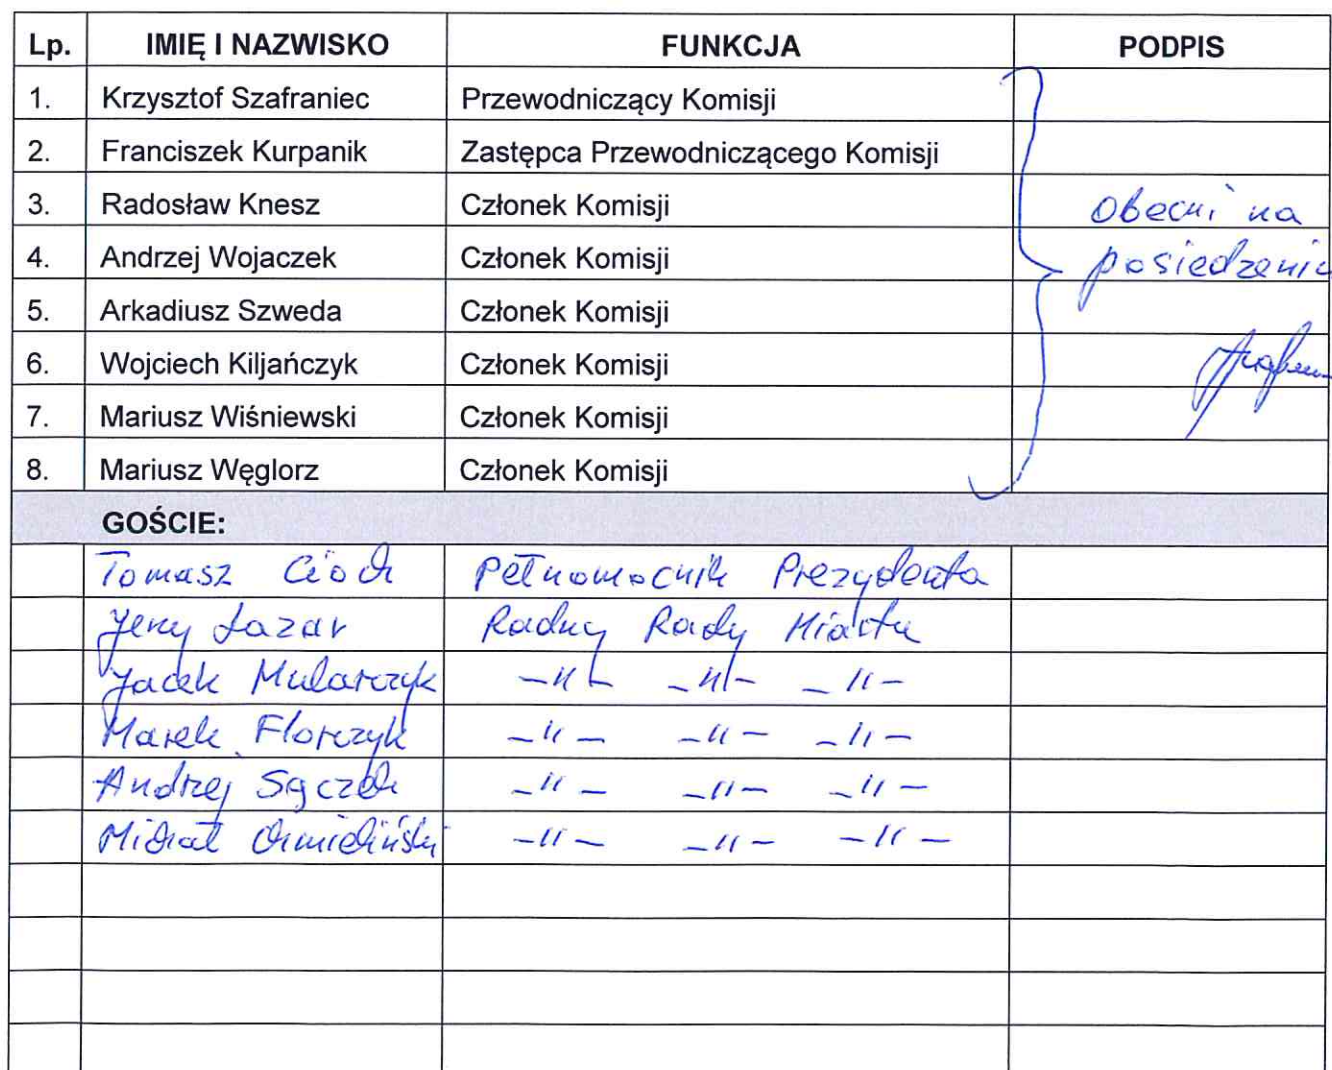 Lp. IMIĘ I NAZWISKO FUNKCJA PODPIS
1. Krzysztof Szafraniec Przewodniczący Komisji
2. Franciszek Kurpanik Zastępca Przewodniczącego Komisji
3. Radosław Knesz Członek Komisji Obecni na
4. Andrzej Wojaczek Członek Komisji posiedzeniu
5. Arkadiusz Szweda Członek Komisji
6. Wojciech Kiljańczyk Członek Komisji
7. Mariusz Wiśniewski Członek Komisji
8. Mariusz Węglorz Członek Komisji
GOŚCIE:
Tomasz Cioch Pełnomocnik Prezydenta
Jerzy Łazar Radny Rady Miasta
Jacek Mularczyk -||- -||- -||-
Marek Florczyk -||- -||- -||-
Andrzej Sączek -||- -||- -||-
Michał Chmieliński -||- -||- -||-